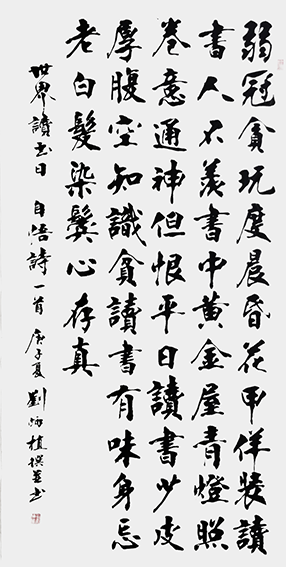 弱冠貪玩度晨昏花甲佯裝讀
書人不羨書中黃金屋青燈照
卷意通神但恨平日讀書少皮
厚腹空知識貧讀書有味身忘
老白髮染鬢心存真
世界讀书日 自悟詩一首 庚子夏 劉植撰並书